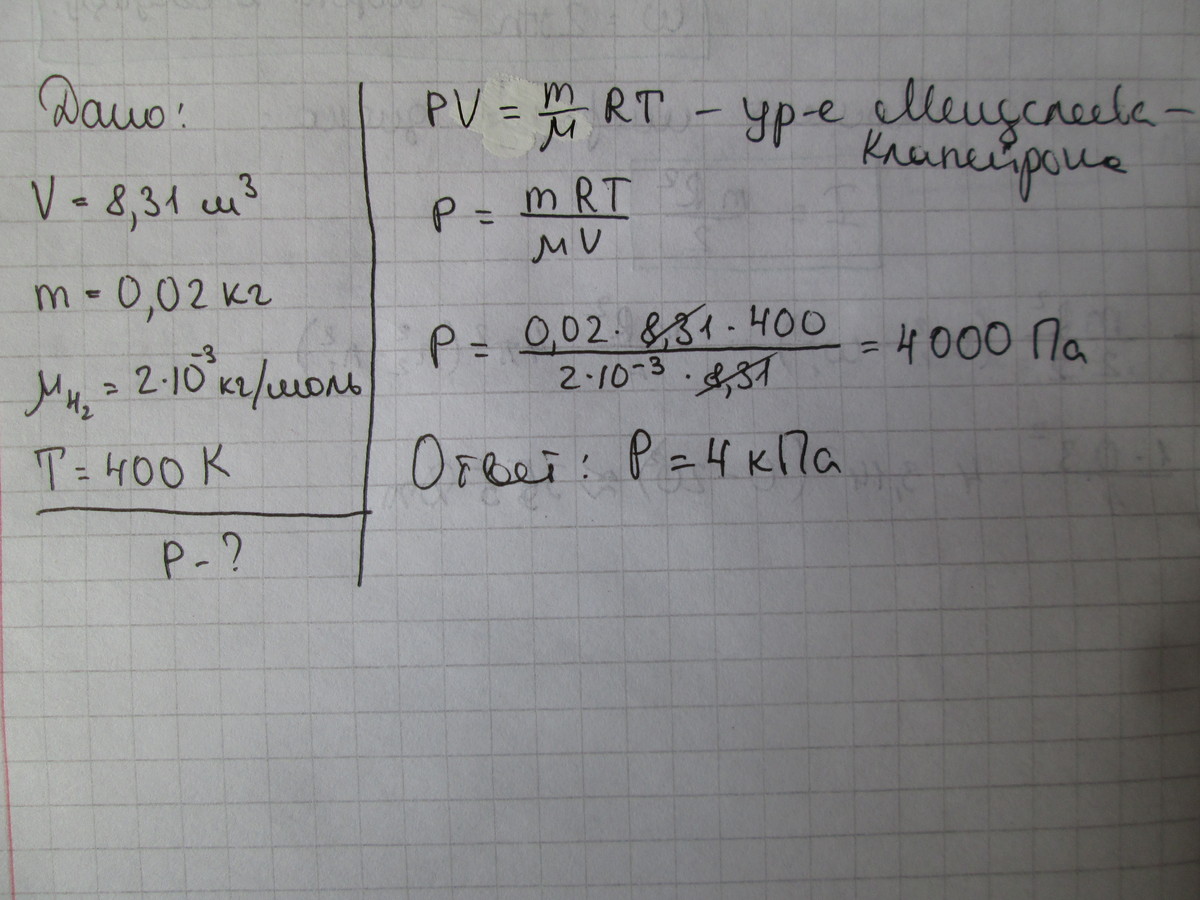 Дано:
V = 8,31 м³
m = 0,02 кг
μ_H₂ = 2·10⁻³ кг/моль
T = 400 К
P - ?
PV = m/μ RT – ур-е Менделеева –
Клапейрона
P = mRT/μV
P = 0,02 · 8,31 · 400 / 2·10⁻³ · 8,31 = 4000 Па
Ответ: P = 4 кПа